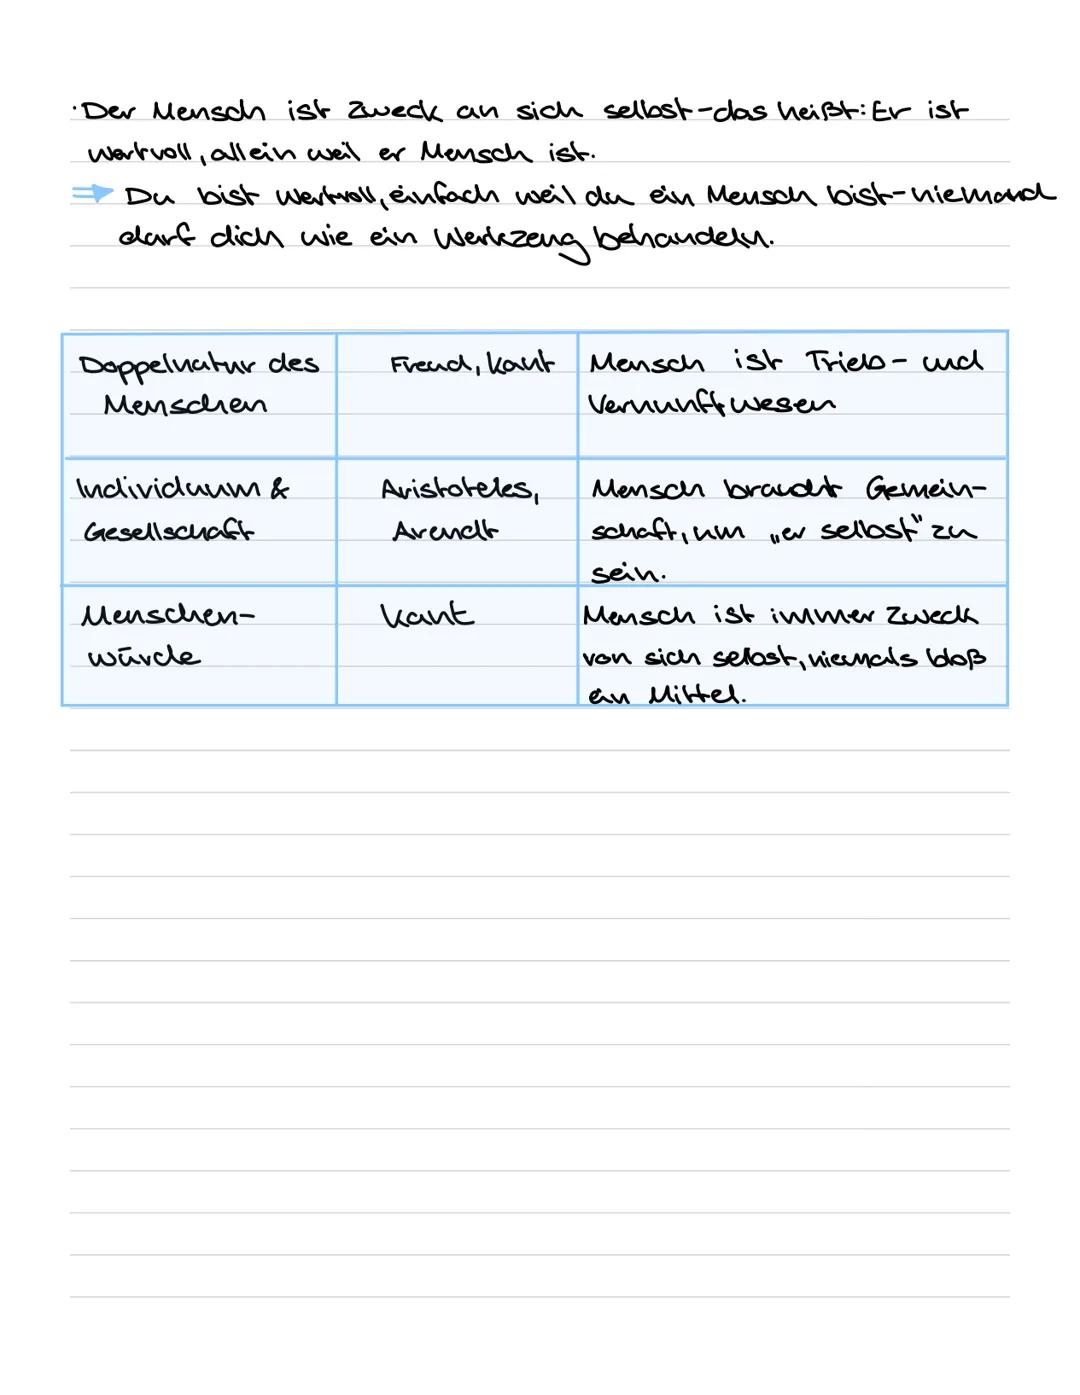 · Der Mensch ist Zweck an sich selbst - das heißt: Er ist
wertvoll, allein weil er Mensch ist.
⇒ Du bist wertvoll, einfach weil du ein Mensch bist - niemand
darf dich wie ein Werkzeug behandeln.
Doppelnatur des
Menschen
Freud, Kant
Mensch ist Trieb- und
Vernunftwesen
Individuum &
Gesellschaft
Aristoteles,
Arendt
Mensch braucht Gemein-
schaft, um „er selbst" zu
sein.
Menschen-
würde
Kant
Mensch ist immer Zweck
von sich selbst, niemals bloß
ein Mittel.